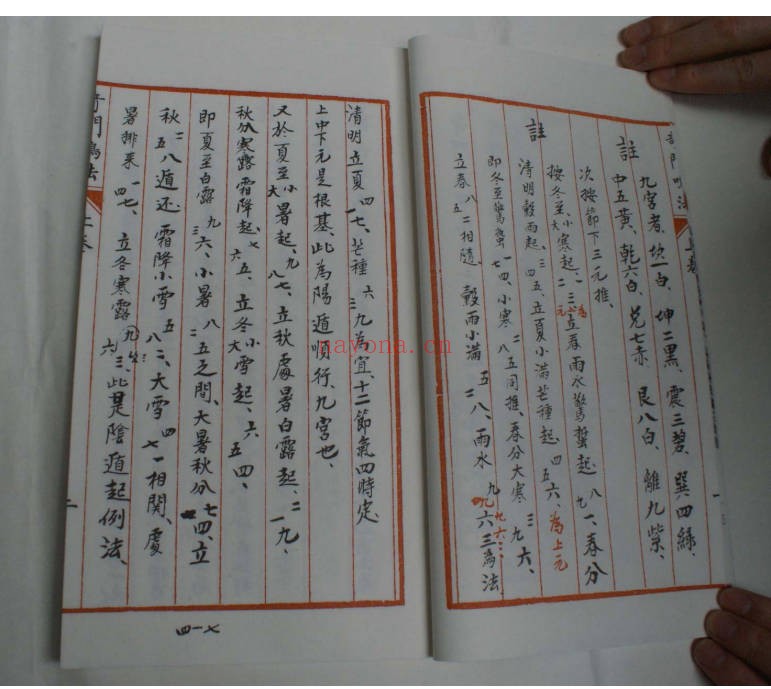 註
九宮者、坎一白、坤二黑、震三碧、巽四綠、
中五黃、乾六白、兌七赤、艮八白、離九紫、
次按節下三元推、
註
按冬至、小大寒起、一二三為上元立春雨水驚蟄起、八九一、春分
清明穀雨起、三四五、立夏小滿芒種起、四五六、為上元
即冬至驚蟄一七四、小寒二八五同推、春分大寒三九六、
立春八五二相隨、穀雨小滿五二八、雨水九六三為法、
九六三、
清明立夏四一七、芒種六三九為宜、十二節氣四時定、
上中下元是根基、此為陽遁順行、九宮也、
又於夏至小大暑起、九八七、立秋處暑白露起、二一九、
秋分寒露霜降起、七六五、立冬小大雪起、六五四、
即夏至白露九三六、小暑八二五之間、大暑秋分七一四、立
秋二五八遁还、霜降小雪五八二、大雪四七一相関、處
暑排来一四七、立冬寒露六九三、此是陰遁起例法、
上卷
二
四一七
nayona.cn